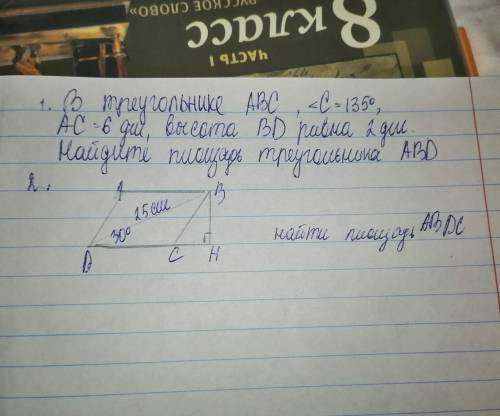 РУССКОЕ СЛОВО»
8 КЛАСС
ЧАСТЬ I
1. В треугольнике ABC, <C=135°,
AC=6 дм, высота BD равна 2 дм.
Найдите площадь треугольника ABD
2.
A B
25 см
30°
D C H
найти площадь ABDC